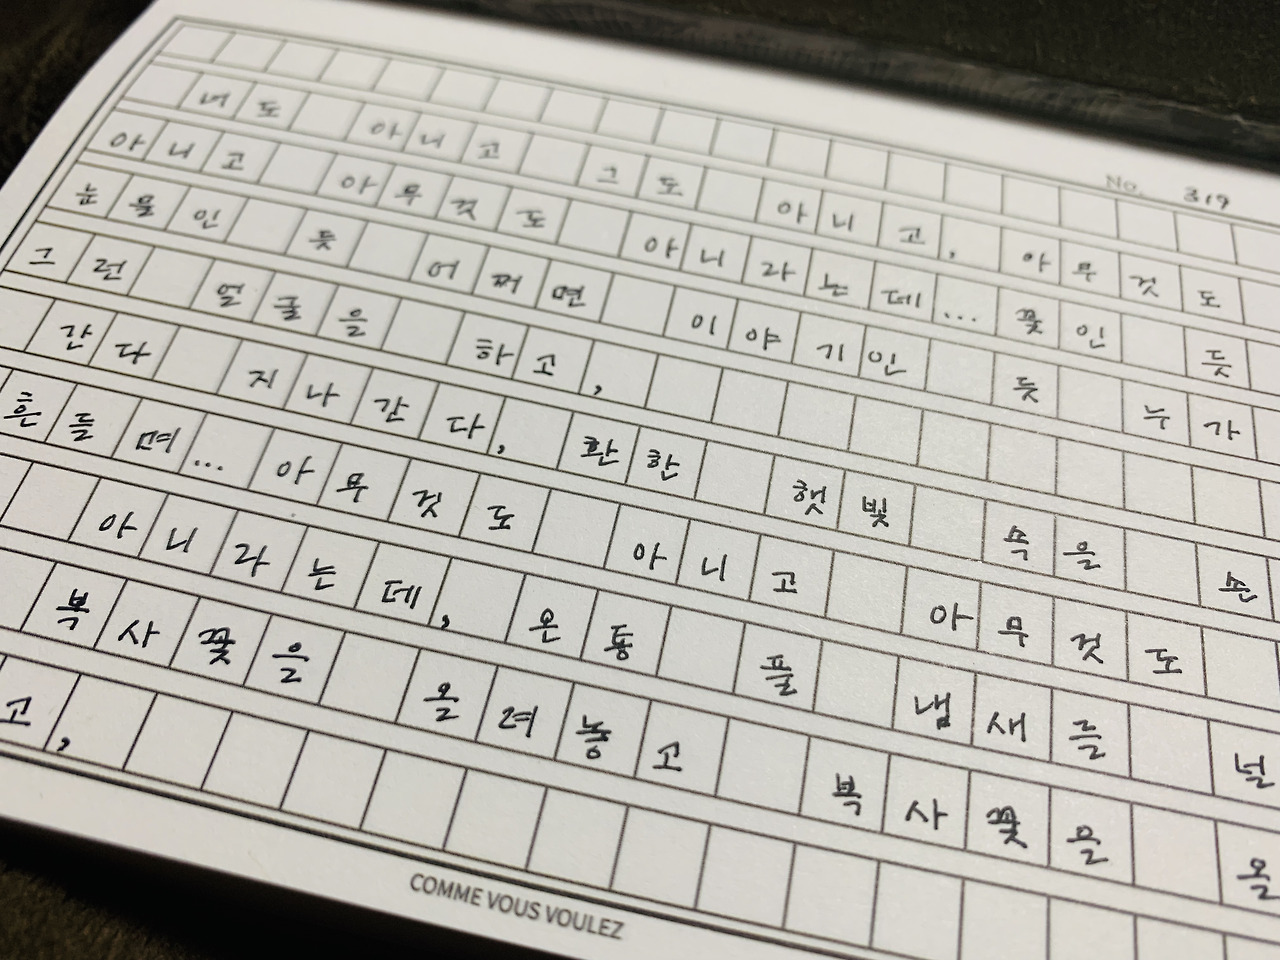 No. 319
너도 아니고 그도 아니고, 아무것도
아니고 아무것도 아니라는데... 꽃인 듯
눈물인 듯 어쩌면 이야기인 듯 누가
그런 얼굴을 하고,
간다 지나간다, 환한 햇빛 속을 손
흔들며... 아무것도 아니고 아무것도
아니라는데, 온통 풀 냄새를 널
복사꽃을 올려놓고 복사꽃을 올
고,
COMME VOUS VOULEZ